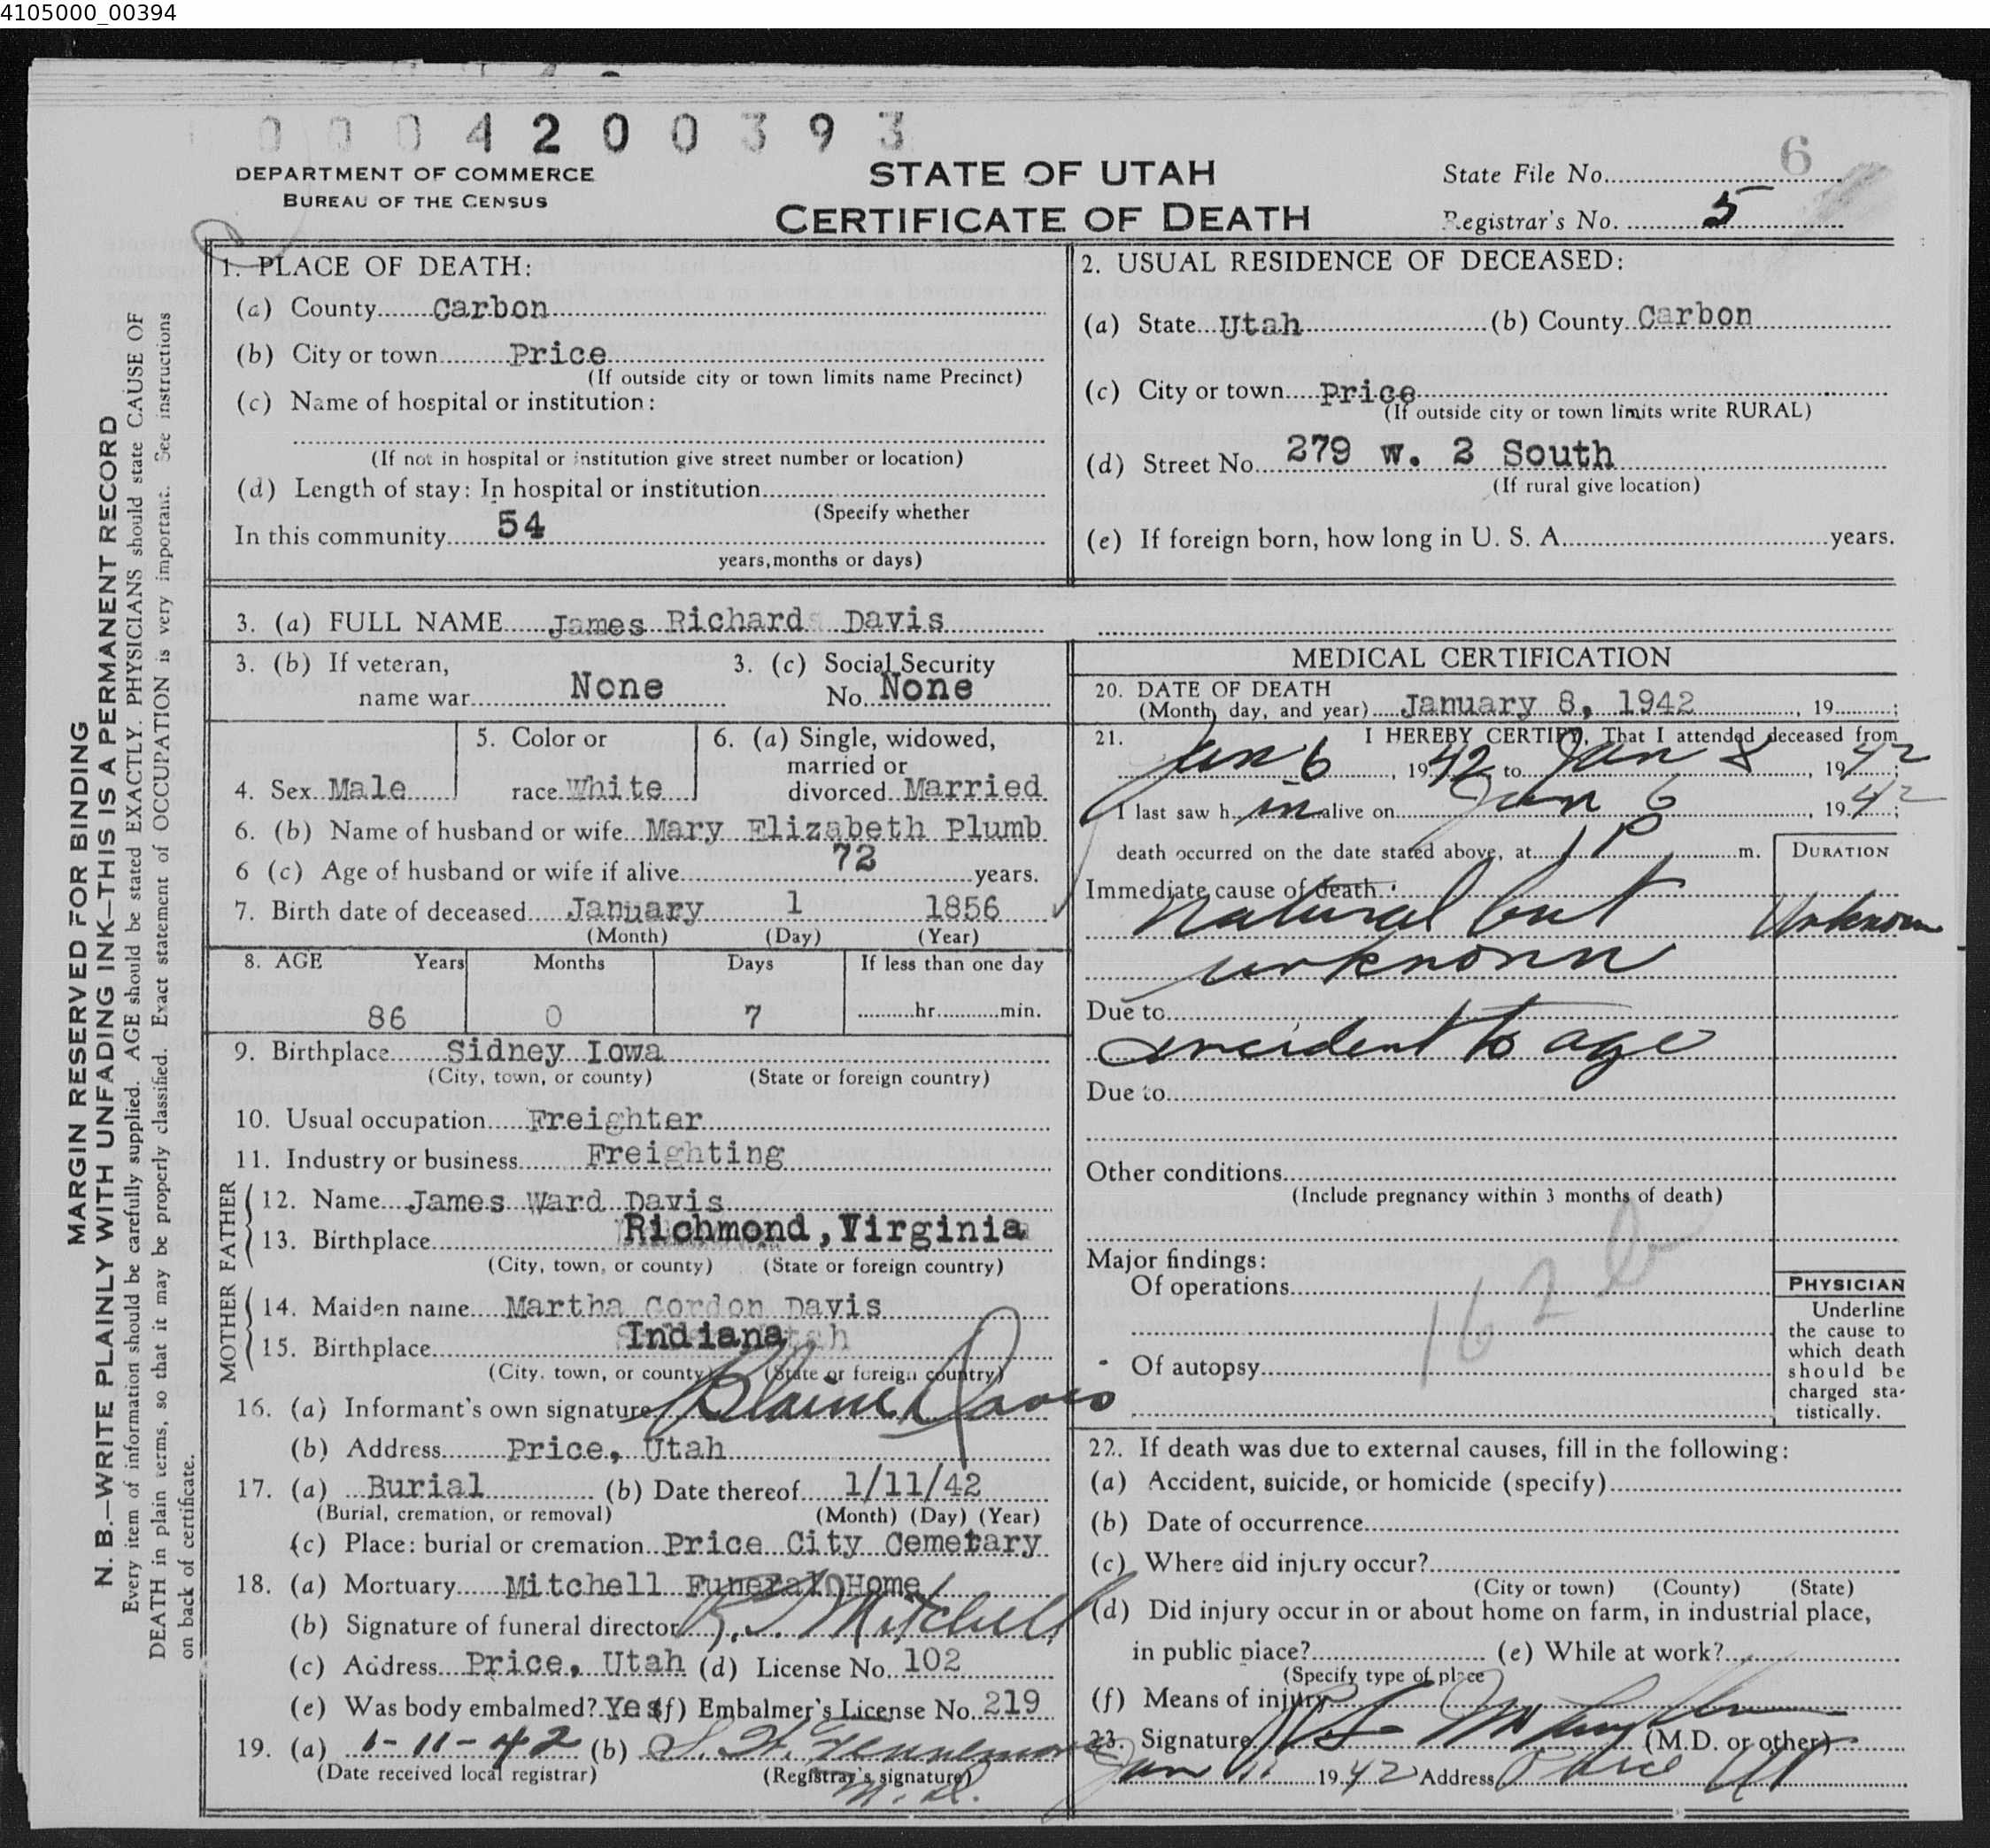 4105000_00394
0004200393
6
DEPARTMENT OF COMMERCE
BUREAU OF THE CENSUS
STATE OF UTAH
CERTIFICATE OF DEATH
State File No.
Registrar's No. 5
MARGIN RESERVED FOR BINDING
N. B.—WRITE PLAINLY WITH UNFADING INK—THIS IS A PERMANENT RECORD
Every item of information should be carefully supplied. AGE should be stated EXACTLY. PHYSICIANS should state CAUSE OF
DEATH in plain terms, so that it may be properly classified. Exact statement of OCCUPATION is very important. See instructions
on back of certificate.
1. PLACE OF DEATH:
(a) County Carbon
(b) City or town Price
(If outside city or town limits name Precinct)
(c) Name of hospital or institution:
(If not in hospital or institution give street number or location)
(d) Length of stay: In hospital or institution
(Specify whether
In this community 54
years, months or days)
2. USUAL RESIDENCE OF DECEASED:
(a) State Utah (b) County Carbon
(c) City or town Price
(If outside city or town limits write RURAL)
(d) Street No. 279 w. 2 South
(If rural give location)
(e) If foreign born, how long in U. S. A. years.
3. (a) FULL NAME James Richard Davis
3. (b) If veteran,
name war None
3. (c) Social Security
No. None
4. Sex Male
5. Color or
race White
6. (a) Single, widowed,
married or
divorced Married
6. (b) Name of husband or wife Mary Elizabeth Plumb
6 (c) Age of husband or wife if alive 72 years.
7. Birth date of deceased January 1 1856
(Month) (Day) (Year)
8. AGE Years Months Days If less than one day
86 0 7 hr. min.
9. Birthplace Sidney Iowa
(City, town, or county) (State or foreign country)
10. Usual occupation Freighter
11. Industry or business Freighting
FATHER
12. Name James Ward Davis
13. Birthplace Richmond, Virginia
(City, town, or county) (State or foreign country)
MOTHER
14. Maiden name Martha Cordon Davis
15. Birthplace Indiana
(City, town, or county) (State or foreign country)
16. (a) Informant's own signature Blaine Davis
(b) Address Price, Utah
17. (a) Burial (b) Date thereof 1/11/42
(Burial, cremation, or removal) (Month) (Day) (Year)
(c) Place: burial or cremation Price City Cemetary
18. (a) Mortuary Mitchell Funeral Home
(b) Signature of funeral director Mitchell
(c) Address Price, Utah (d) License No. 102
(e) Was body embalmed? Yes (f) Embalmer's License No. 219
19. (a) 1-11-42 (b)
(Date received local registrar) (Registrar's signature)
M. D.
MEDICAL CERTIFICATION
20. DATE OF DEATH
(Month, day, and year) January 8, 1942, 19 ;
21. I HEREBY CERTIFY, That I attended deceased from
Jan 6, 1942 to Jan 8, 1942;
I last saw him alive on Jan 6, 1942;
death occurred on the date stated above, at 1 P m.
DURATION
Immediate cause of death:
Natural but Unknown
unknown
Due to
incident to age
Due to
Other conditions
(Include pregnancy within 3 months of death)
Major findings:
162b
Of operations
Of autopsy
PHYSICIAN
Underline
the cause to
which death
should be
charged sta-
tistically.
22. If death was due to external causes, fill in the following:
(a) Accident, suicide, or homicide (specify)
(b) Date of occurrence
(c) Where did injury occur?
(City or town) (County) (State)
(d) Did injury occur in or about home on farm, in industrial place,
in public place? (e) While at work?
(Specify type of place
(f) Means of injury
23. Signature (M.D. or other)
Jan 11 1942 Address Price Ut